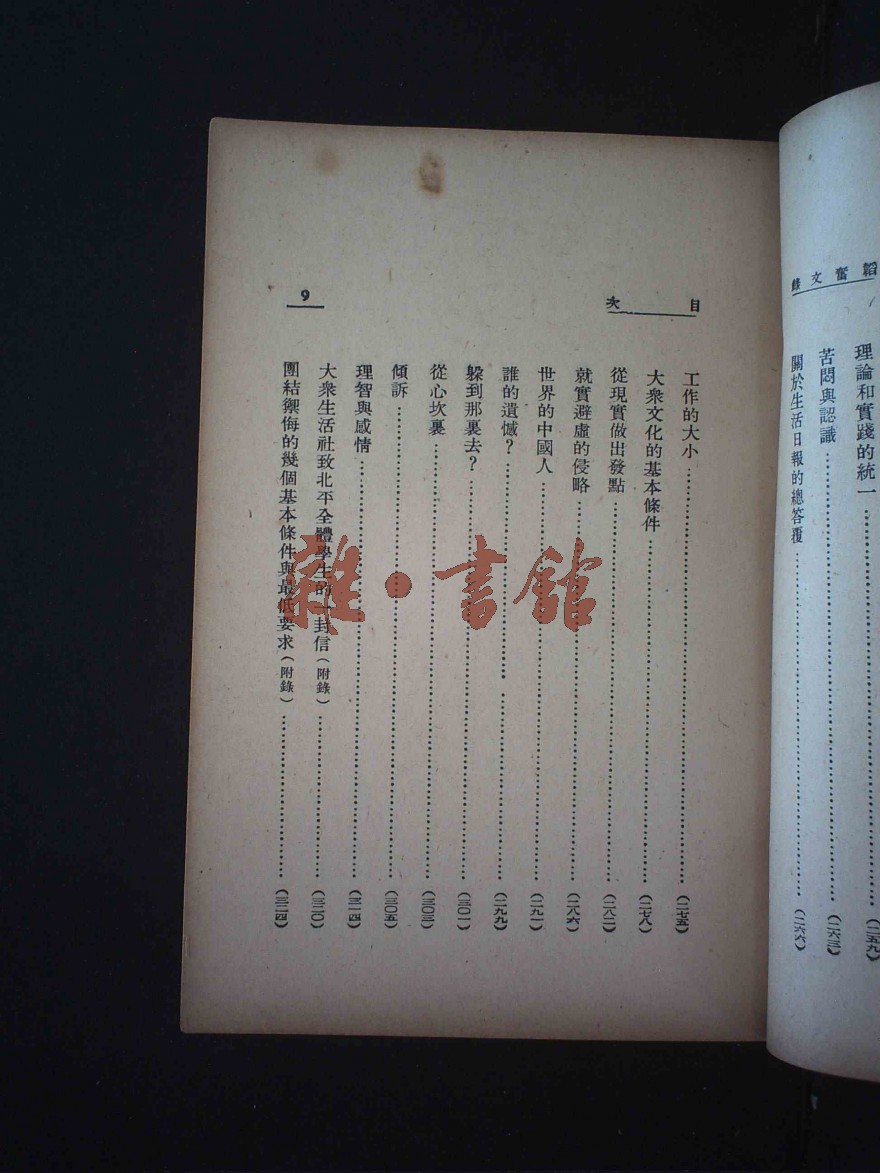 韜奮文錄
理論和實踐的統一……(二五九)
苦悶與認識……(二六三)
關於生活日報的總答覆……(二六六)
目次
工作的大小……(二七五)
大衆文化的基本條件……(二七八)
從現實做出發點……(二八二)
就實避虛的侵略……(二八六)
世界的中國人……(二九一)
誰的遺憾？……(二九九)
躲到那裏去？……(三〇一)
從心坎裏……(三〇三)
傾訴……(三〇五)
理智與感情……(三一四)
大衆生活社致北平全體學生的一封信(附錄)……(三二〇)
團結禦侮的幾個基本條件與最低要求(附錄)……(三二四)
9
雜·書館